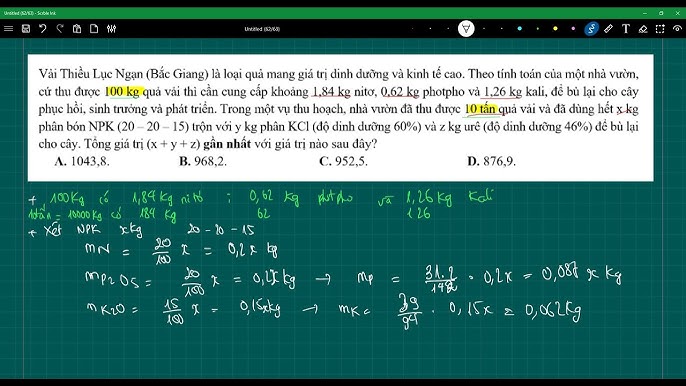 Untitled (62/63) - Scrible Ink
Untitled (62/63)
Vải Thiều Lục Ngạn (Bắc Giang) là loại quả mang giá trị dinh dưỡng và kinh tế cao. Theo tính toán của một nhà vườn,
cứ thu được 100 kg quả vải thì cần cung cấp khoảng 1,84 kg nitơ, 0,62 kg photpho và 1,26 kg kali, để bù lại cho cây
phục hồi, sinh trưởng và phát triển. Trong một vụ thu hoạch, nhà vườn đã thu được 10 tấn quả vải và đã dùng hết x kg
phân bón NPK (20 – 20 – 15) trộn với y kg phân KCl (độ dinh dưỡng 60%) và z kg urê (độ dinh dưỡng 46%) để bù lại
cho cây. Tổng giá trị (x + y + z) gần nhất với giá trị nào sau đây?
A. 1043,8. B. 968,2. C. 952,5. D. 876,9.
+ 100kg có 1,84 kg nitơ ; 0,62 kg photpho và 1,26 kg Kali
10tấn = 10000kg có 184 kg 62 126
+ Xét NPK x kg 20 - 20 - 15
mN = 20/100 x = 0,2x kg
mP2O5 = 20/100 x = 0,2x kg → mP = 31.2/142 . 0,2x = 0,087 x kg
mK2O = 15/100 x = 0,15x kg → mK = 39/94 . 0,15x = 0,062kg